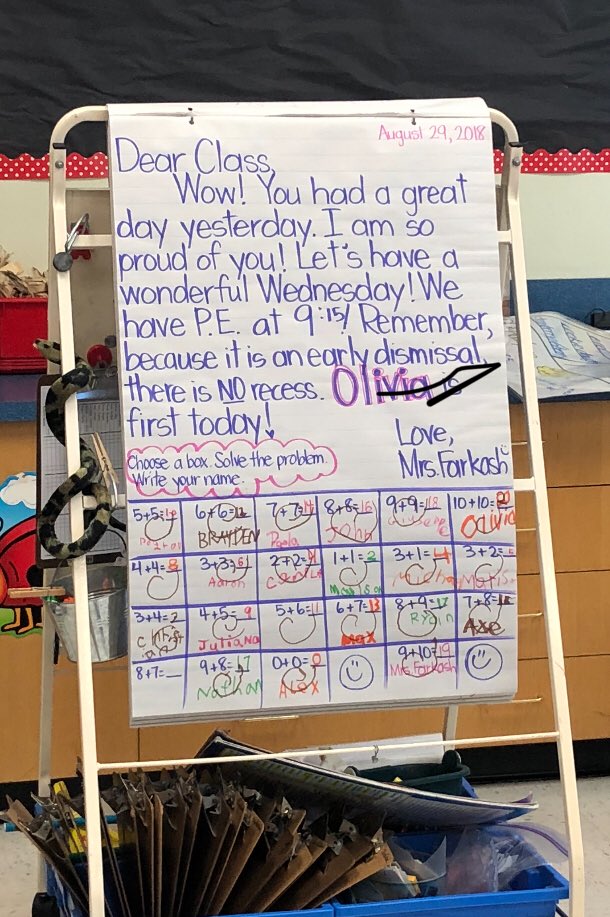 August 29, 2018
Dear Class,
Wow! You had a great
day yesterday. I am so
proud of you! Let's have a
wonderful Wednesday! We
have P.E. at 9:15! Remember,
because it is an early dismissal,
there is NO recess. Olivia is
first today!
Love,
Mrs. Farkash
Choose a box. Solve the problem.
Write your name.
5+5= 6+6=12 7+7=14 8+8=16 9+9=18 10+10=20
BRAYDEN Paola JOhn Olivia
4+4=8 3+3=6 2+2= 1+1=2 3+1=4 3+2=
Aaron
3+4= 4+5=9 5+6=11 6+7=13 8+9=17 7+8=
Juliana Max Ryan Axe
8+7=_ 9+8=17 0+0=0 9+10=19
Nathan Alex Mrs. Farkash